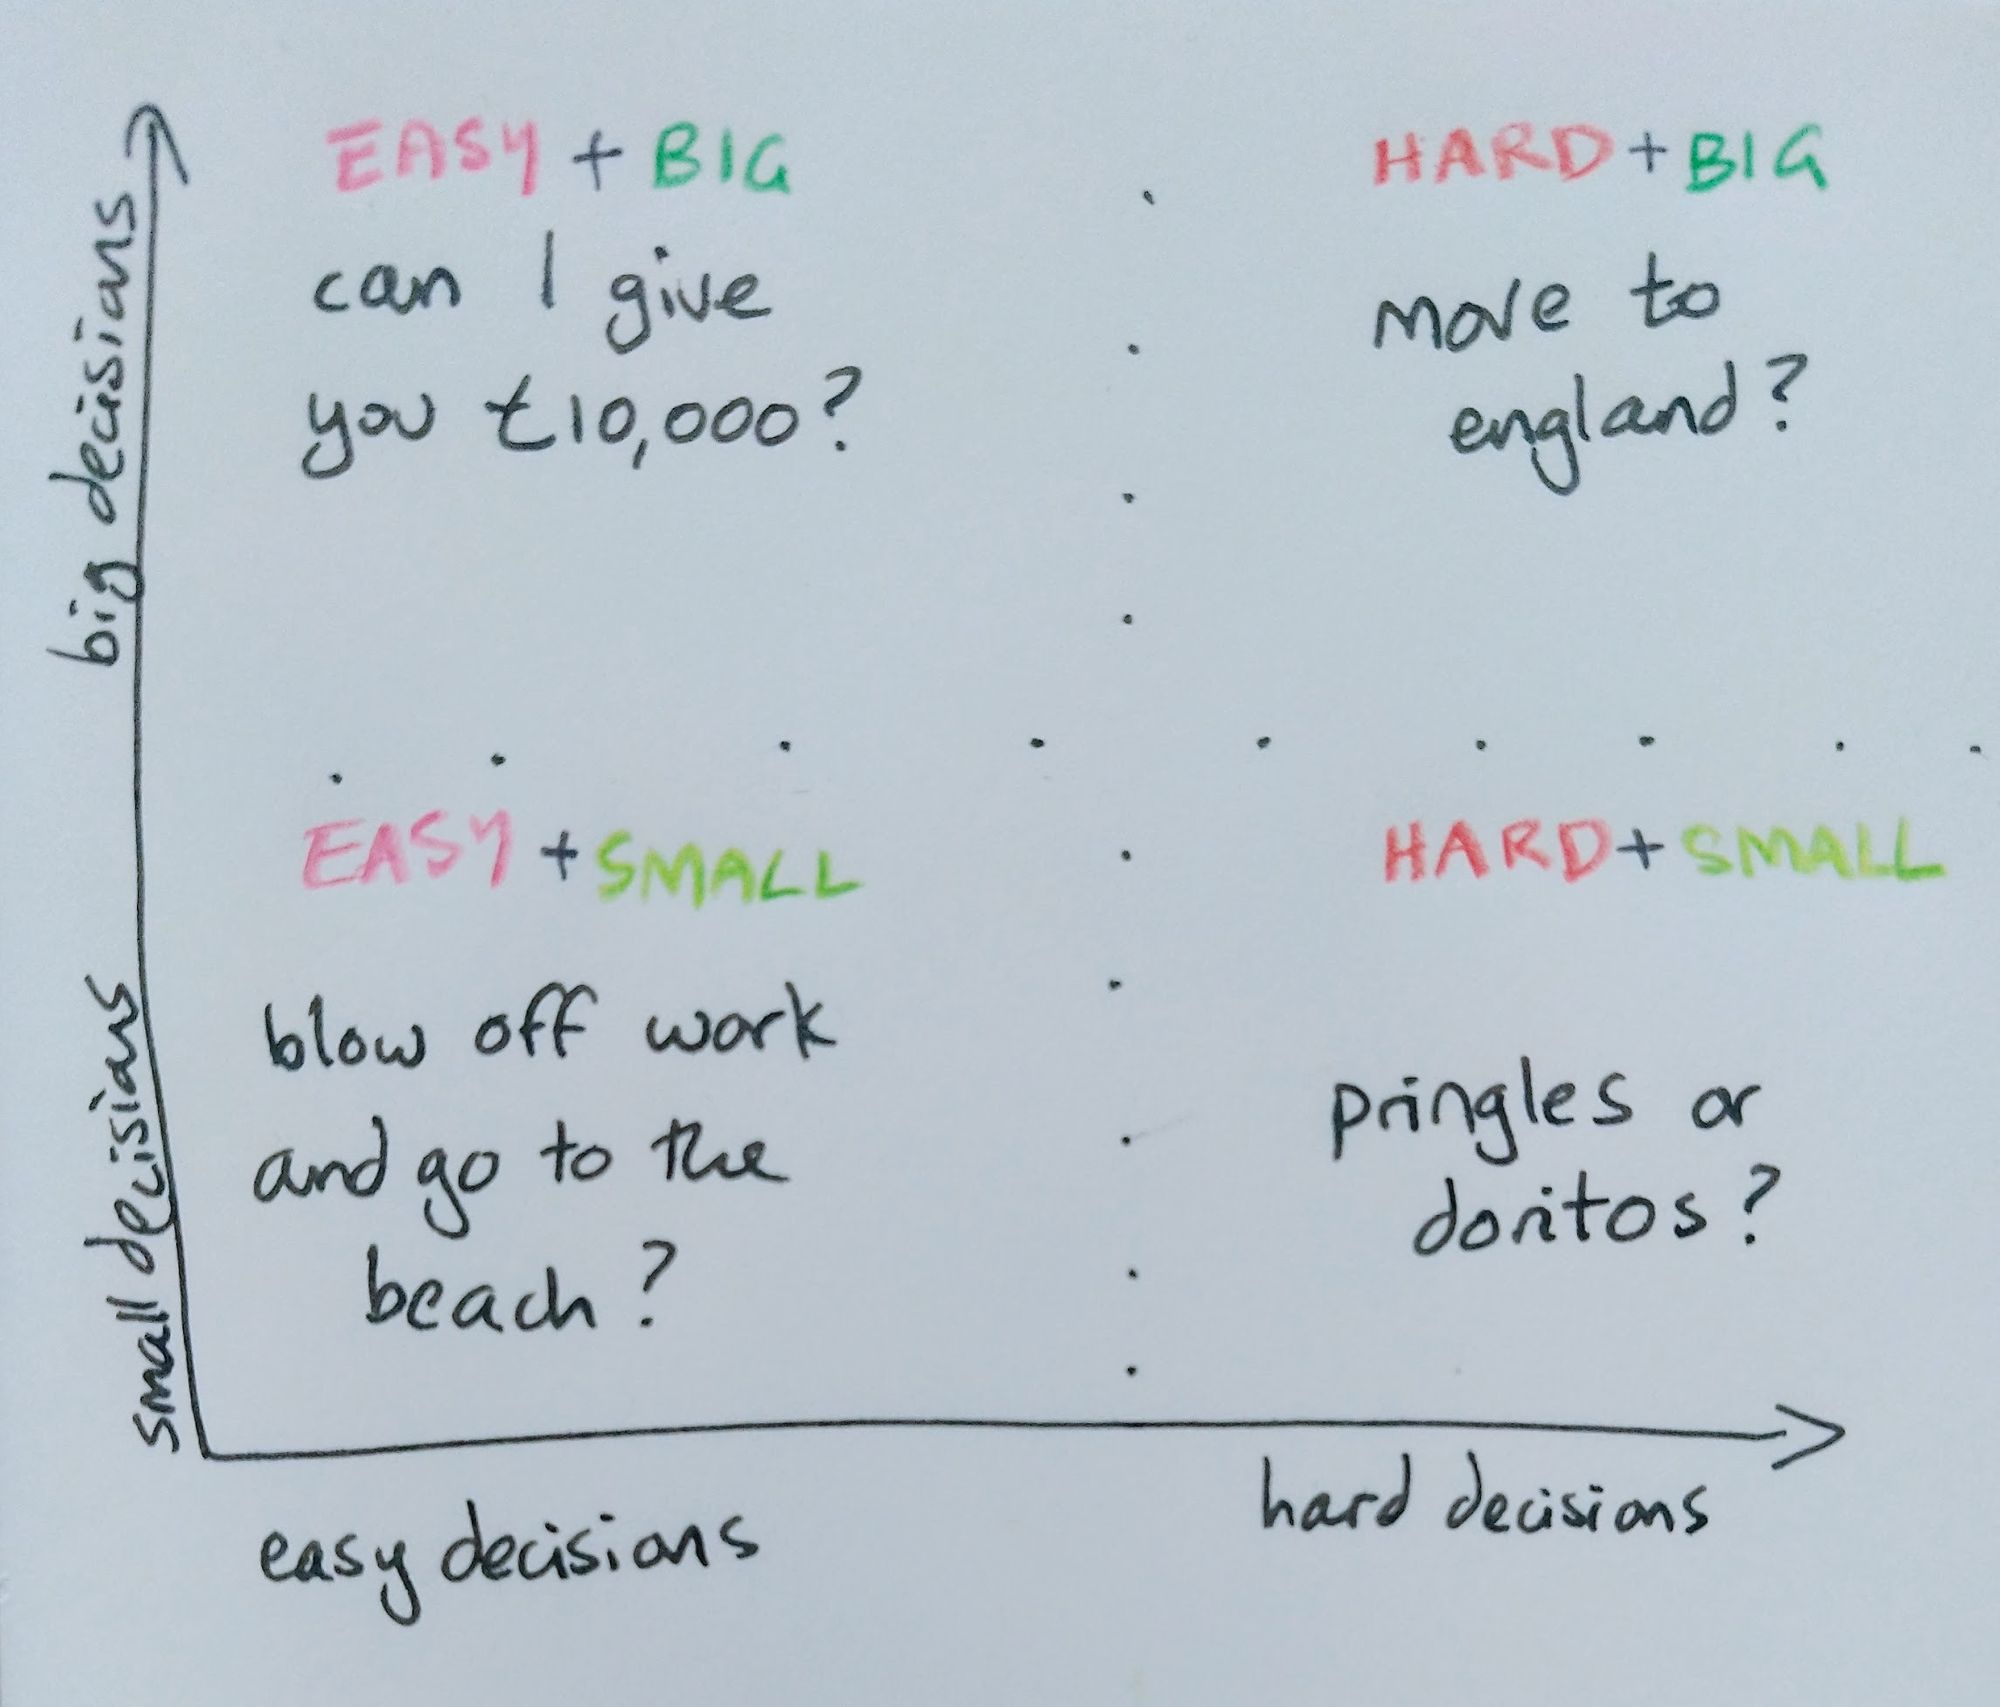 EASY + BIG
can I give
you £10,000?
HARD + BIG
move to
england?
EASY + SMALL
blow off work
and go to the
beach?
HARD + SMALL
pringles or
doritos?
big decisions
small decisions
easy decisions
hard decisions